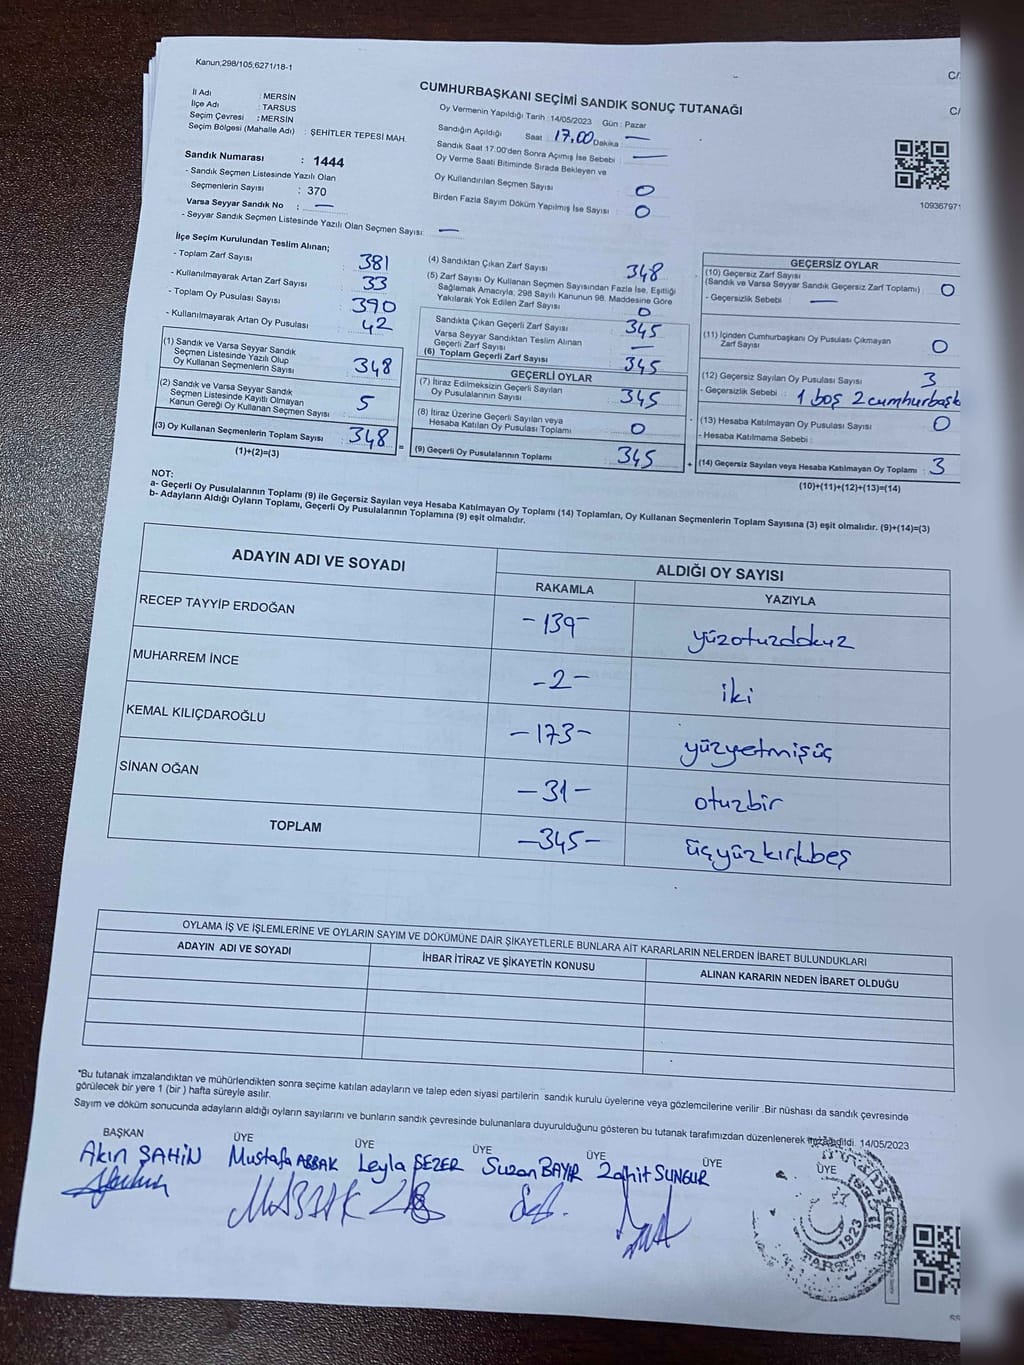 Kanun;298/105;6271/18-1
C/
CUMHURBAŞKANI SEÇİMİ SANDIK SONUÇ TUTANAĞI
C/
İl Adı : MERSİN
İlçe Adı : TARSUS
Seçim Çevresi : MERSİN
Seçim Bölgesi (Mahalle Adı) : ŞEHİTLER TEPESİ MAH.
Sandık Numarası : 1444
- Sandık Seçmen Listesinde Yazılı Olan
Seçmenlerin Sayısı : 370
Varsa Seyyar Sandık No : —
- Seyyar Sandık Seçmen Listesinde Yazılı Olan Seçmen Sayısı: —
Oy Vermenin Yapıldığı Tarih :14/05/2023 Gün : Pazar
Sandığın Açıldığı Saat : 17.00 Dakika : —
Sandık Saat 17.00'den Sonra Açımış İse Sebebi : —
Oy Verme Saati Bitiminde Sırada Bekleyen ve
Oy Kullandırılan Seçmen Sayısı 0
Birden Fazla Sayım Döküm Yapılmış İse Sayısı : 0
109367971
İlçe Seçim Kurulundan Teslim Alınan;
- Toplam Zarf Sayısı 381
- Kullanılmayarak Artan Zarf Sayısı 33
- Toplam Oy Pusulası Sayısı 390
- Kullanılmayarak Artan Oy Pusulası 42
(1) Sandık ve Varsa Seyyar Sandık
Seçmen Listesinde Yazılı Olup
Oy Kullanan Seçmenlerin Sayısı 348
(2) Sandık ve Varsa Seyyar Sandık
Seçmen Listesinde Kayıtlı Olmayan
Kanun Gereği Oy Kullanan Seçmen Sayısı 5
(3) Oy Kullanan Seçmenlerin Toplam Sayısı 348
(1)+(2)=(3)
(4) Sandıktan Çıkan Zarf Sayısı 348
(5) Zarf Sayısı Oy Kullanan Seçmen Sayısından Fazla İse, Eşitliği
Sağlamak Amacıyla, 298 Sayılı Kanunun 98. Maddesine Göre
Yakılarak Yok Edilen Zarf Sayısı 0
Sandıkta Çıkan Geçerli Zarf Sayısı 345
Varsa Seyyar Sandıktan Teslim Alınan
Geçerli Zarf Sayısı —
(6) Toplam Geçerli Zarf Sayısı 345
GEÇERLİ OYLAR
(7) İtiraz Edilmeksizin Geçerli Sayılan
Oy Pusulalarının Sayısı 345
(8) İtiraz Üzerine Geçerli Sayılan veya
Hesaba Katılan Oy Pusulası Toplamı 0
= (9) Geçerli Oy Pusulalarının Toplamı 345
GEÇERSİZ OYLAR
(10) Geçersiz Zarf Sayısı
(Sandık ve Varsa Seyyar Sandık Geçersiz Zarf Toplamı) : 0
- Geçersizlik Sebebi : —
(11) İçinden Cumhurbaşkanı Oy Pusulası Çıkmayan
Zarf Sayısı 0
(12) Geçersiz Sayılan Oy Pusulası Sayısı 3
- Geçersizlik Sebebi : 1 boş 2 cumhurbaşk
(13) Hesaba Katılmayan Oy Pusulası Sayısı 0
- Hesaba Katılmama Sebebi :
+ (14) Geçersiz Sayılan veya Hesaba Katılmayan Oy Toplamı : 3
(10)+(11)+(12)+(13)=(14)
NOT:
a- Geçerli Oy Pusulalarının Toplamı (9) ile Geçersiz Sayılan veya Hesaba Katılmayan Oy Toplamı (14) Toplamları, Oy Kullanan Seçmenlerin Toplam Sayısına (3) eşit olmalıdır. (9)+(14)=(3)
b- Adayların Aldığı Oyların Toplamı, Geçerli Oy Pusulalarının Toplamına (9) eşit olmalıdır.
ADAYIN ADI VE SOYADI ALDIĞI OY SAYISI
RAKAMLA YAZIYLA
RECEP TAYYİP ERDOĞAN -139- yüzotuzdokuz
MUHARREM İNCE -2- iki
KEMAL KILIÇDAROĞLU -173- yüzyetmişüç
SİNAN OĞAN -31- otuzbir
TOPLAM -345- üçyüzkırkbeş
OYLAMA İŞ VE İŞLEMLERİNE VE OYLARIN SAYIM VE DÖKÜMÜNE DAİR ŞİKAYETLERLE BUNLARA AİT KARARLARIN NELERDEN İBARET BULUNDUKLARI
ADAYIN ADI VE SOYADI İHBAR İTİRAZ VE ŞİKAYETİN KONUSU ALINAN KARARIN NEDEN İBARET OLDUĞU
*Bu tutanak imzalandıktan ve mühürlendikten sonra seçime katılan adayların ve talep eden siyasi partilerin sandık kurulu üyelerine veya gözlemcilerine verilir .Bir nüshası da sandık çevresinde
görülecek bir yere 1 (bir ) hafta süreyle asılır.
Sayım ve döküm sonucunda adayların aldığı oyların sayılarını ve bunların sandık çevresinde bulunanlara duyurulduğunu gösteren bu tutanak tarafımızdan düzenlenerek imza edildi. 14/05/2023
BAŞKAN ÜYE ÜYE ÜYE ÜYE ÜYE
Akın ŞAHİN Mustafa ABBAK Leyla SEZER Suzan BAYIR Zahit SUNGUR
MABBAK
1923
TARSUS